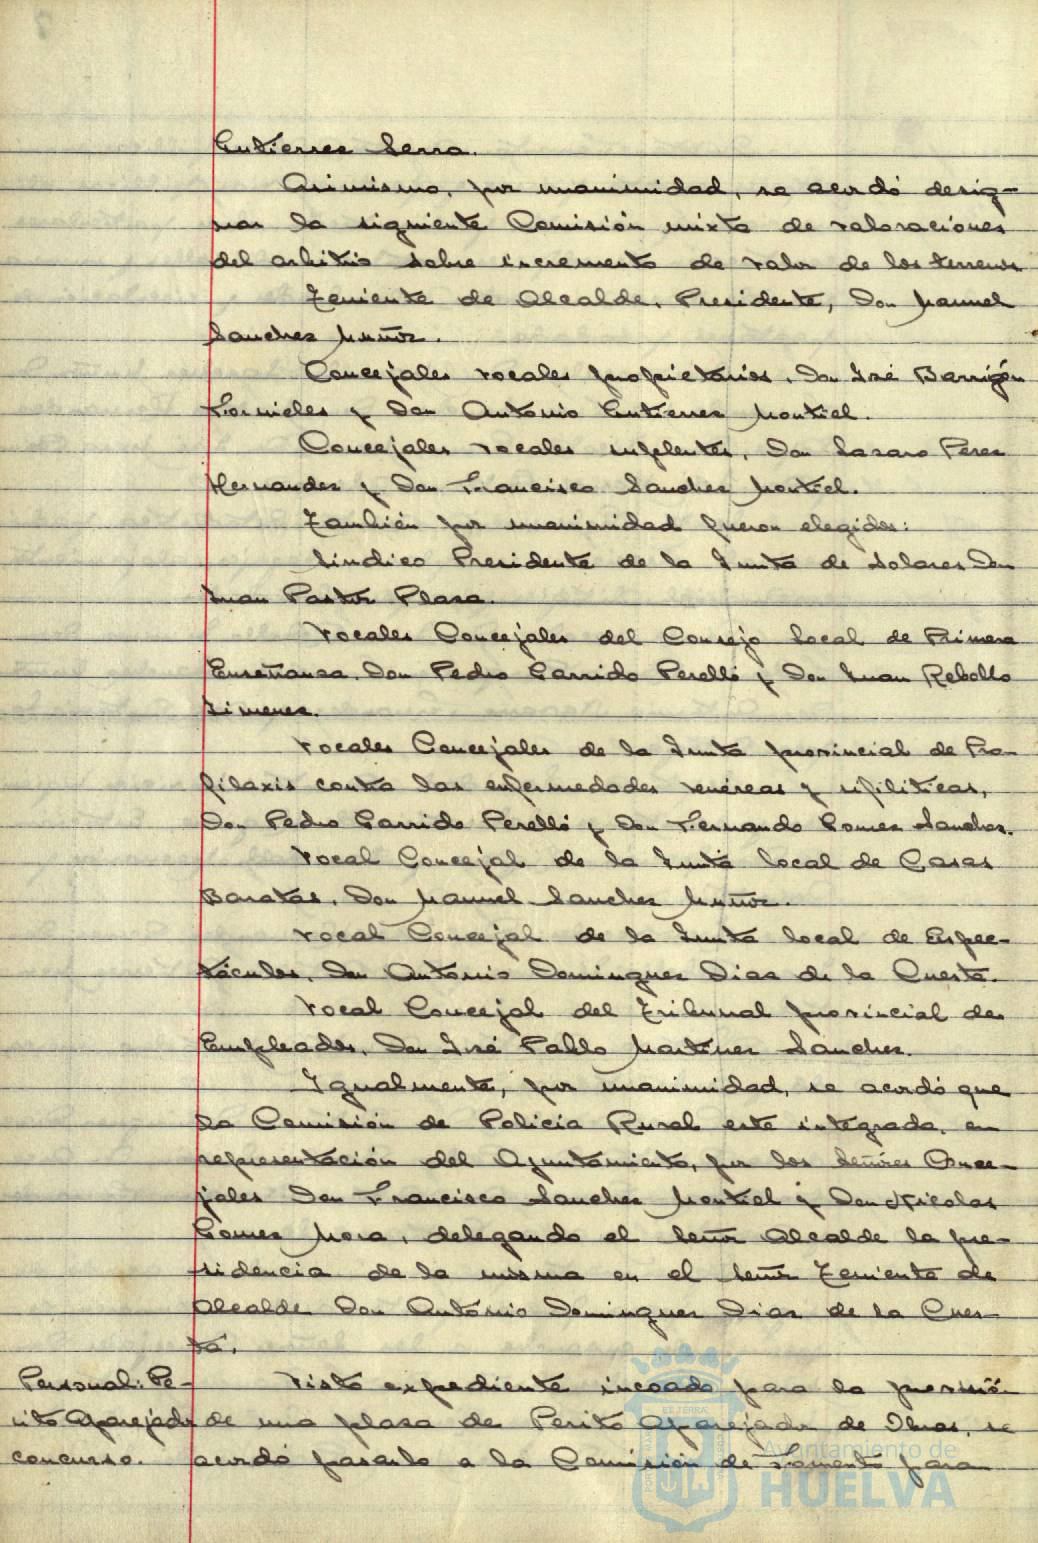 Gutierrez Serra.
Asimismo, por unanimidad, se acordó desig-
nar la siguiente Comisión mixta de valoraciones
del arbitrio sobre incremento de valor de los terrenos
Teniente de Alcalde, Presidente, Don Manuel
Sanchez Muñoz.
Concejales vocales propietarios, Don José Barrigón
Fornieles y Don Antonio Gutierrez Montiel.
Concejales vocales suplentes, Don Lazaro Perez
Hernandez y Don Francisco Sanchez Montiel.
También por unanimidad fueron elegidos:
Síndico Presidente de la Junta de Solares Don
Juan Pastor Plaza.
Vocales Concejales del Consejo local de Primera
Enseñanza, Don Pedro Garrido Perelló y Don Juan Rebollo
Jimenez.
Vocales Concejales de la Junta provincial de Pro-
filaxis contra las enfermedades venéreas y sifiliticas,
Don Pedro Garrido Perelló y Don Fernando Gomez Sanchez.
Vocal Concejal de la Junta local de Casas
Baratas, Don Manuel Sanchez Muñoz.
Vocal Concejal de la Junta local de Espec-
táculos, Don Antonio Dominguez Diaz de la Cuesta.
Vocal Concejal del Tribunal provincial de
Empleados, Don José Pablo Martinez Sanchez.
Igualmente, por unanimidad, se acordó que
la Comisión de Policía Rural esté integrada, en
representación del Ayuntamiento, por los señores Conce-
jales Don Francisco Sanchez Montiel y Don Nicolas
Gomez Mora, delegando el Señor Alcalde la pre-
sidencia de la misma en el Señor Teniente de
Alcalde Don Antonio Dominguez Diaz de la Cues-
ta.
Personal: Pe- Visto expediente incoado para la provisión
rito Aparejador de una plaza de Perito Aparejador de Obras, se
concurso. acordó pasarlo a la Comisión de Fomento para
Ayuntamiento de
HUELVA